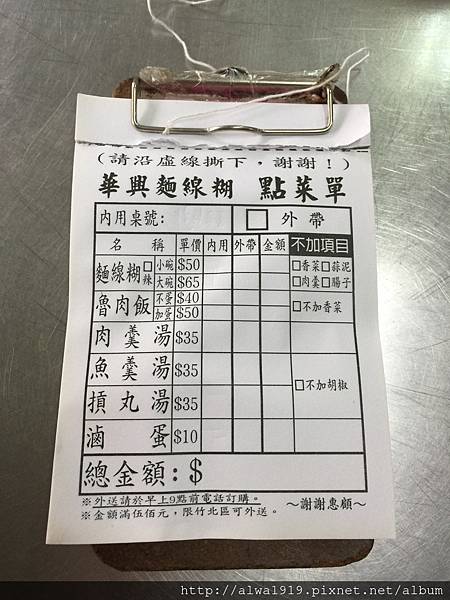 (請沿虛線撕下，謝謝！)
華興麵線糊 點菜單
內用桌號: □ 外帶
名稱 單價 內用 外帶 金額 不加項目
麵線糊 □辣 小碗 $50 □香菜□蒜泥
大碗 $65 □肉羹□腸子
魯肉飯 不蛋 $40 □不加香菜
加蛋 $50
肉羹湯 $35
魚羹湯 $35 □不加胡椒
摃丸湯 $35
滷蛋 $10
總金額:$
※外送請於早上9點前電話訂購。
※金額滿伍佰元，限竹北區可外送。 ～謝謝惠顧～
http://alwa1919.pixnet.net/album